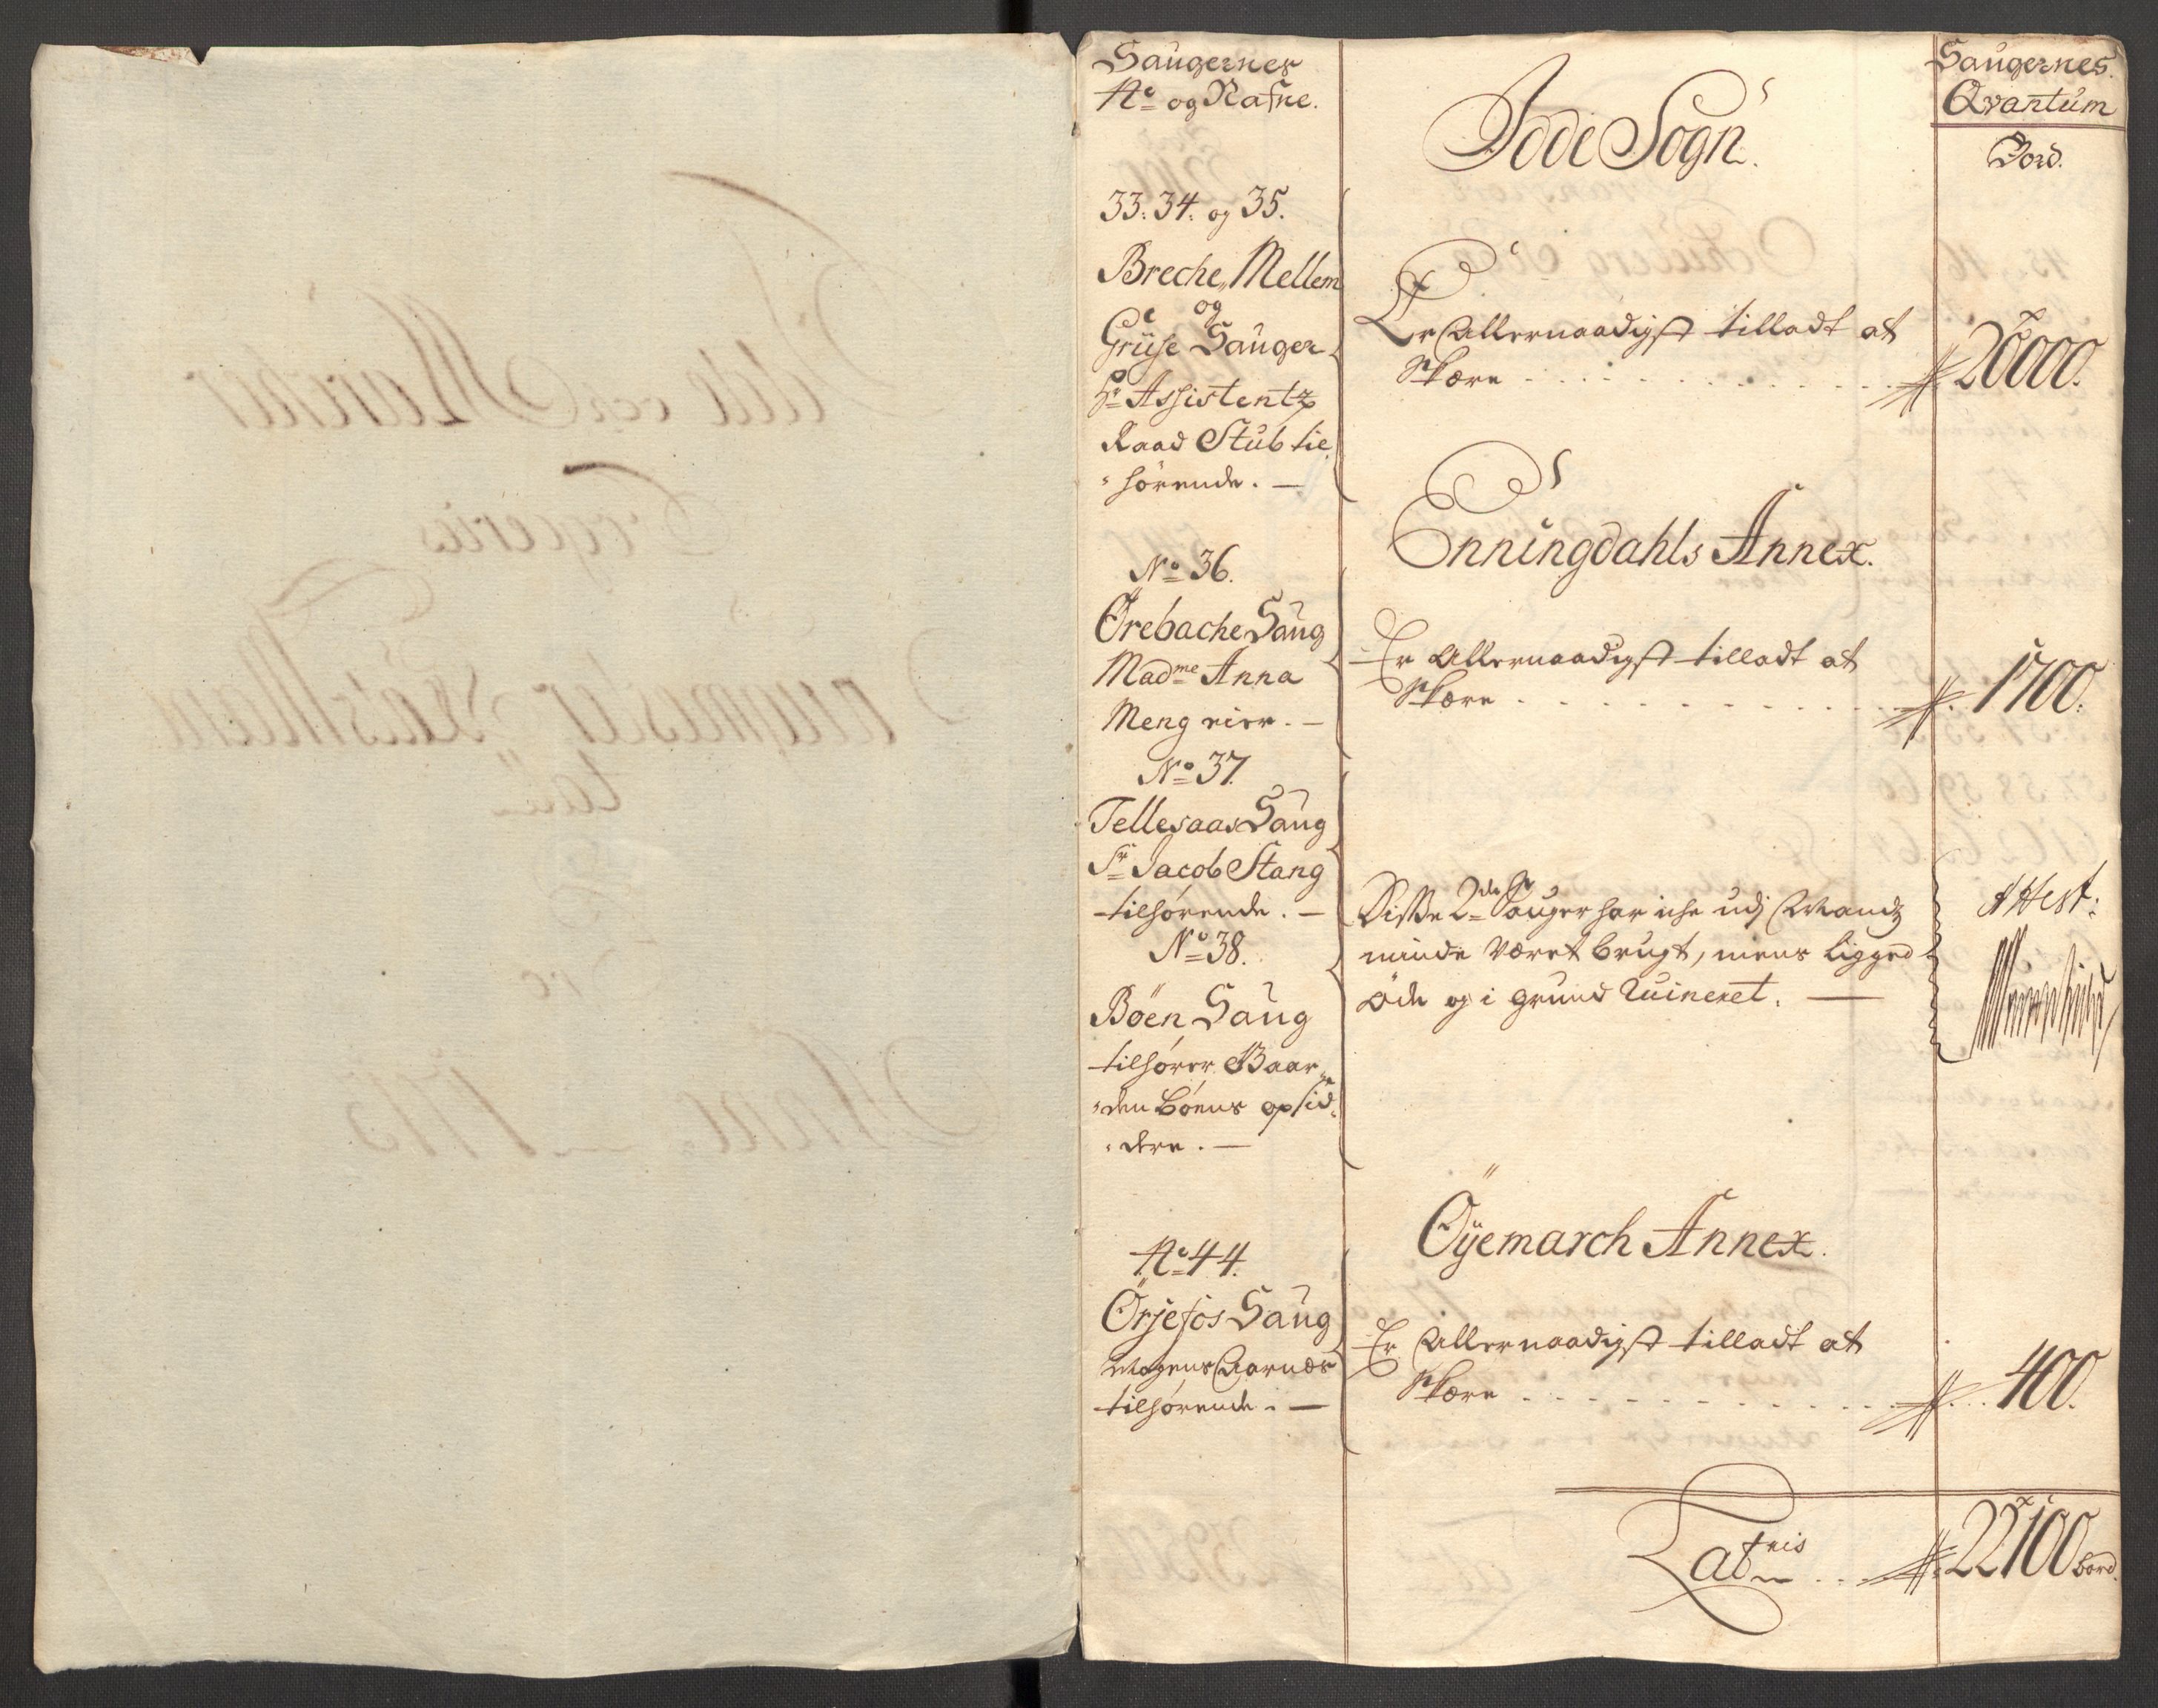 Saugernes
No og Nafne.
Saugernes
Qvantum
Idde Sogn.
Bord.
33: 34: og 35.
Breche, Mellem
og
Grüse Sauger
Hr Assistentz
Raad Stub til
hörende. —
Er Allernaadigst tilladt at
Skære . . . . 20000.
Enningdahls Annex.
No 36.
Örebache Saug
Madme Anna
Meng eier. —
Er Allernaadigst tilladt at
Skære . . . . 1700.
No 37.
Tellesaas Saug
Sr Jacob Stang
tilhörende. —
No 38.
Böen Saug
tilhører Baar
den Böens opsid
dere. —
Disse 2de Sauger har iche udj Mands
minde været brugt, mens ligged
öde og i grund Ruineret. —
Attest:
Öÿemarch Annex.
No 44.
Örjefos Saug
Mogens
tilhörende. —
Er Allernaadigst tilladt at
Skære . . . . 400.
Latris . . . 22100 bord.